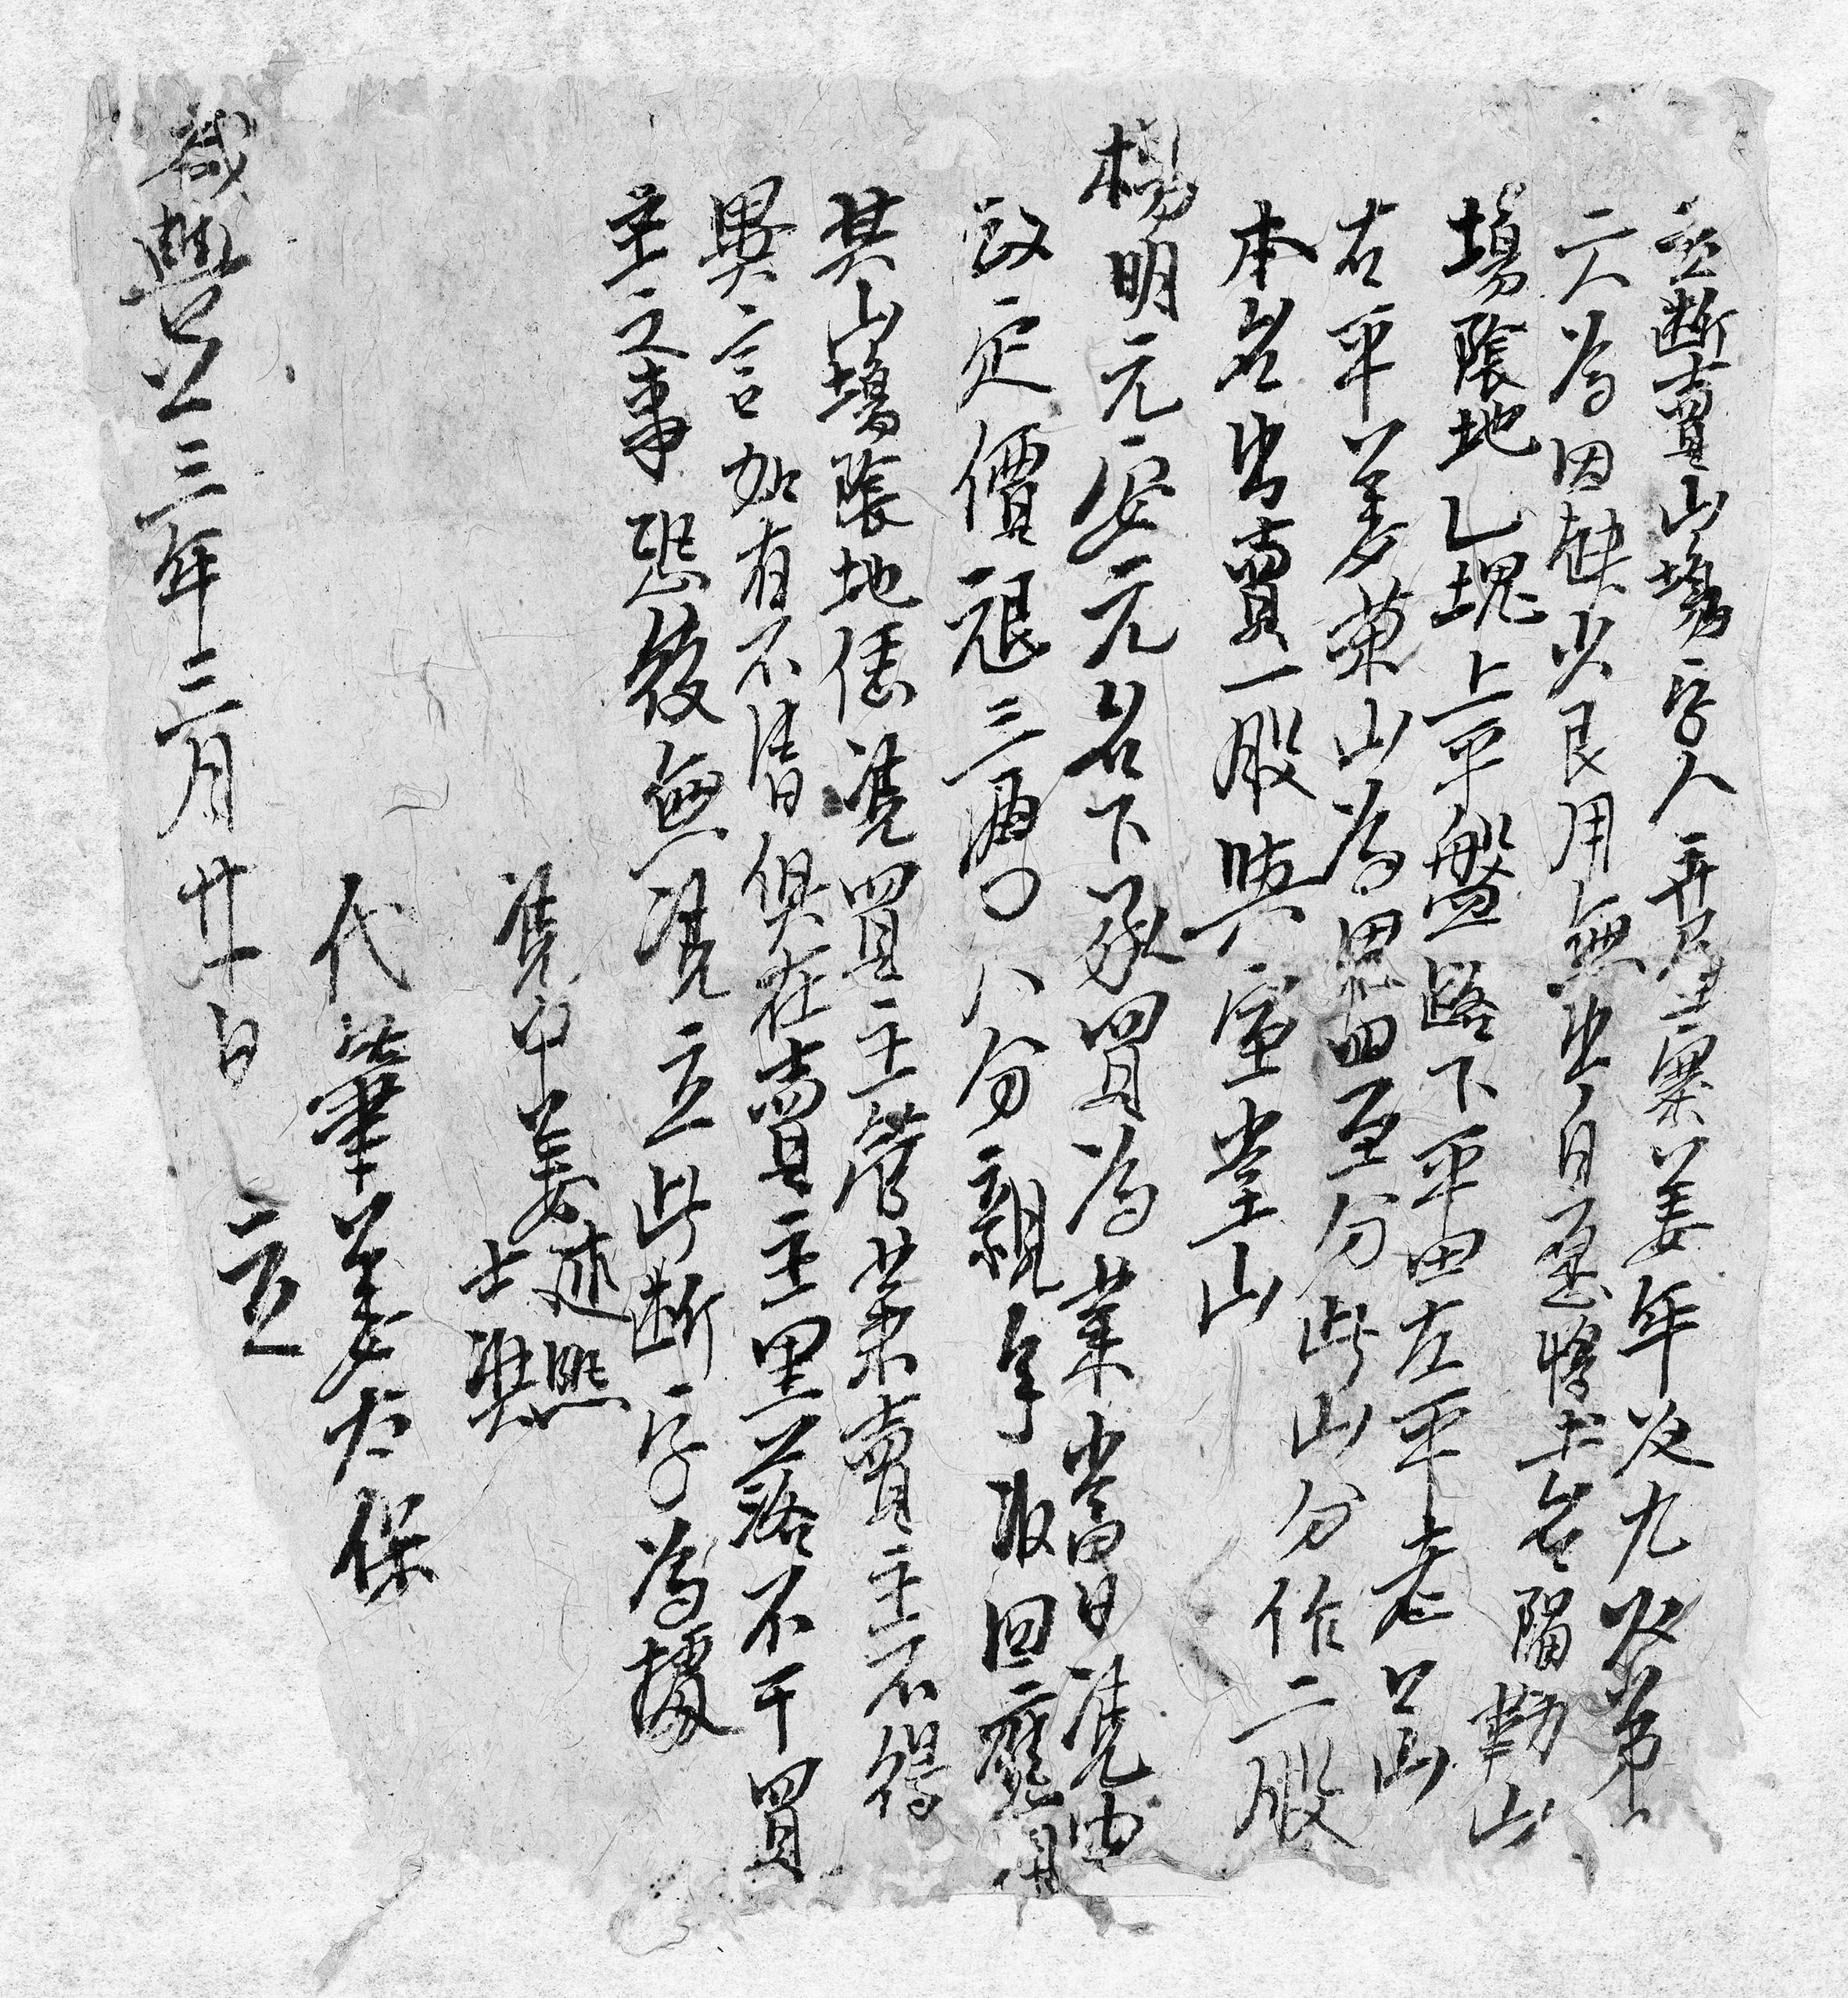 立斷賣山塲字人平鰲寨姜年及九火弟
二人為因缺少艮用無出自願將土名隔勒山
塲隂地乙塊上平盤路下平田左平老山
右平姜蘭山為界四至分此山分作二股
本名出賣一股與堂山
楊明元安元名下承買為業當日凴中
改定價銀三両〇八分親手收回應用
其山塲隂地任凴買主管業賣主不得
異言如有不清俱在賣主里落不干買
主之事恐後無凴立此斷字為據
凴中姜述熙
士興
代筆姜大保
咸豐三年三月廿日 立